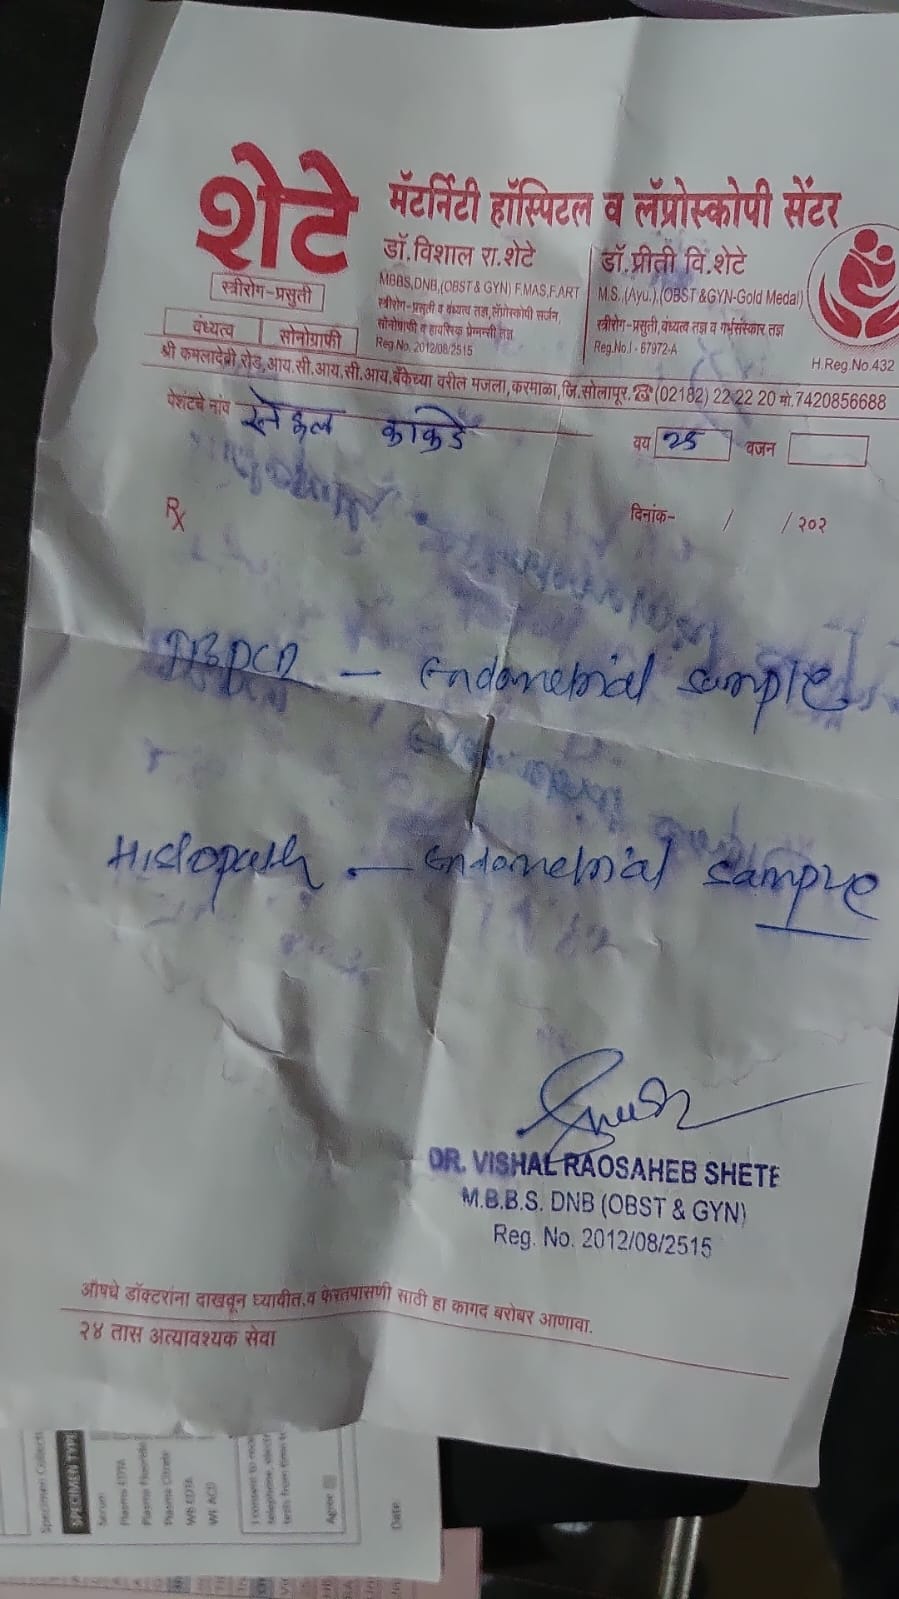 शेटे
मॅटर्निटी हॉस्पिटल व लॅप्रोस्कोपी सेंटर
स्त्रीरोग-प्रसुती
वंध्यत्व
सोनोग्राफी
डॉ.विशाल रा.शेटे
MBBS,DNB,(OBST & GYN) F.MAS,F.ART
स्त्रीरोग-प्रसुती व वंध्यत्व तज्ञ,लॅप्रोस्कोपी सर्जन,
सोनोग्राफी व हायरिस्क प्रेग्नन्सी तज्ञ
Reg.No. 2012/08/2515
डॉ.प्रीती वि.शेटे
M.S.,(Ayu.),(OBST &GYN-Gold Medal)
स्त्रीरोग-प्रसुती,वंध्यत्व तज्ञ व गर्भसंस्कार तज्ञ
Reg.No.I - 67972-A
H.Reg.No.432
श्री कमलादेवी रोड,आय.सी.आय.सी.आय.बँकेच्या वरील मजला,करमाळा,जि.सोलापूर.☎(02182) 22 22 20 मो.7420856688
पेशंटचे नांव स्नेहल काकडे वय 25 वजन
Rx
दिनांक- / / २०२
Endometrial sample
Histopath - Endometrial sample
DR. VISHAL RAOSAHEB SHETE
M.B.B.S. DNB (OBST & GYN)
Reg. No. 2012/08/2515
औषधे डॉक्टरांना दाखवून घ्यावीत.व फेरतपासणी साठी हा कागद बरोबर आणावा.
२४ तास अत्यावश्यक सेवा
SPECIMEN TYPE
Serum
Plasma EDTA
Plasma Fluoride
Plasma Citrate
WB EDTA
WB ACD
Agree
Date